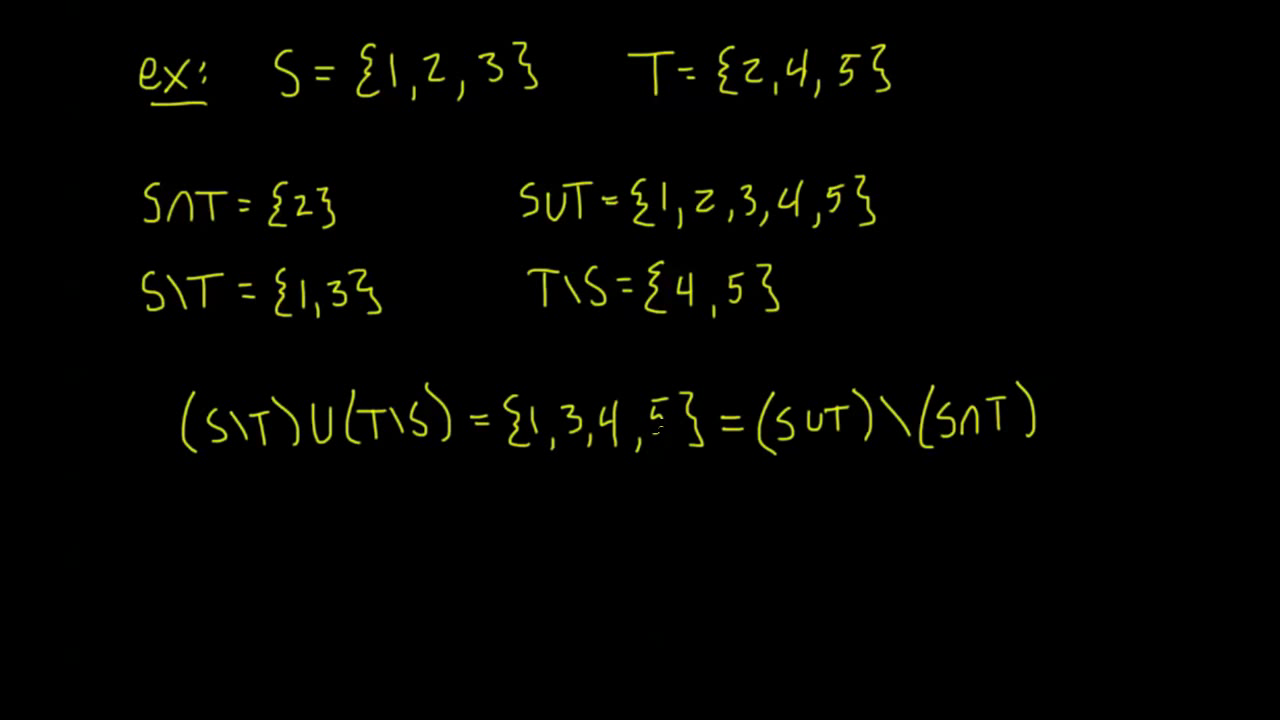 ex: S = {1, 2, 3} T = {2, 4, 5}
S∩T = {2} S∪T = {1, 2, 3, 4, 5}
S\T = {1, 3} T\S = {4, 5}
(S\T) ∪ (T\S) = {1, 3, 4, 5} = (S∪T) \ (S∩T)